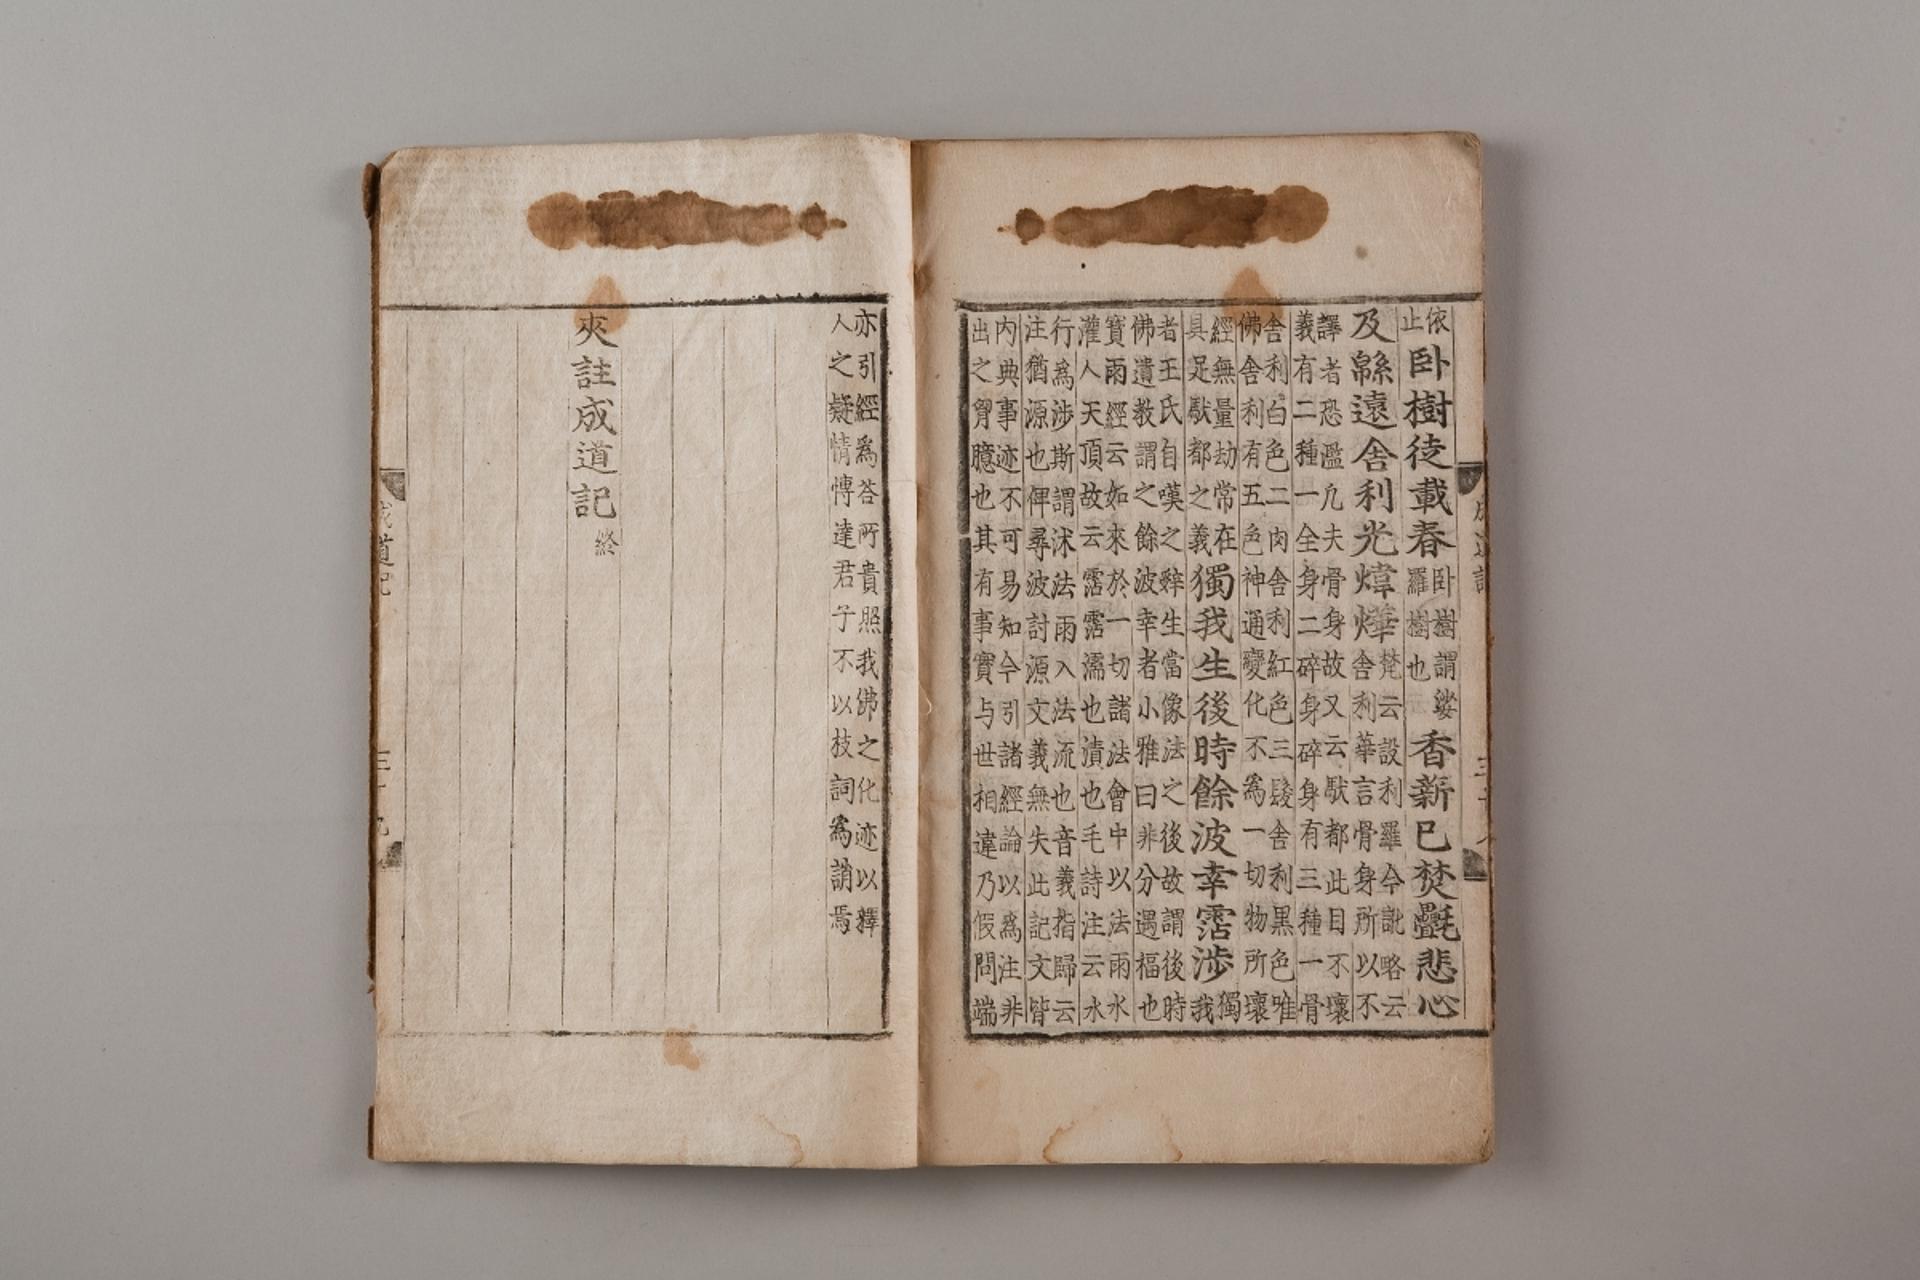 依
止
卧樹徒載春
卧樹謂娑
羅樹也
香薪已焚㲲悲心
及緜遠舍利光煒燁
梵云設利羅今訛略云
舍利華言骨身所以不
譯者恐濫凢夫骨身故又云馱都此目不壞
義有二種一全身二碎身碎身有三種一骨
舍利白色二肉舍利紅色三髮舍利黑色唯
佛舍利有五色神通變化不為一切物所壞
經無量劫常在
具足馱都之義
獨我生後時餘波幸霑涉
獨
我
者王氏自嘆之辤生當像法之後故謂後時
佛遺教謂之餘波幸者小雅曰非分遇福也
寶雨經云如來於一切諸法會中以法雨水
灌人天頂故云霑霑濡也漬也毛詩注云水
行為涉斯謂沐法雨入法流也音義指歸云
注猶源也俾尋波討源文義無失此記文皆
内典事迹不可易知今引諸經論以為注非
出之胷臆也其有事實与世相違乃假問端
亦引經為荅所貴照我佛之化迹以釋
人之疑情慱達君子不以枝詞為誚焉
夾註成道記終
成道記
三十九